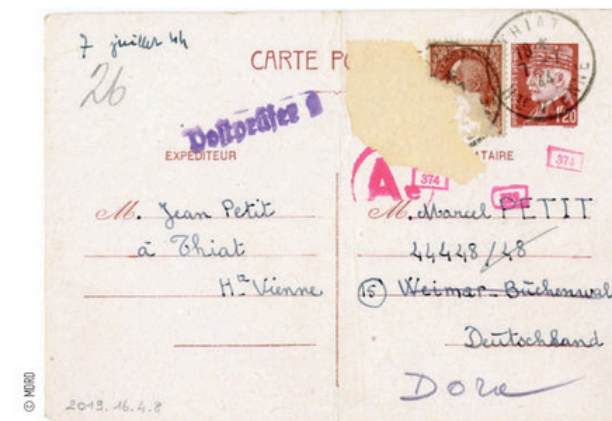 7 juillet 44
26
CARTE PO
THIAT
1,20
Postprüfer
EXPÉDITEUR
ATAIRE
374
Ae
374
M. Jean Petit
à Thiat
Hte Vienne
M. Marcel PETIT
44448/48
(15) Weimar-Buchenwal
Deutschland
Dora
2019.16.4.8
© MDRD